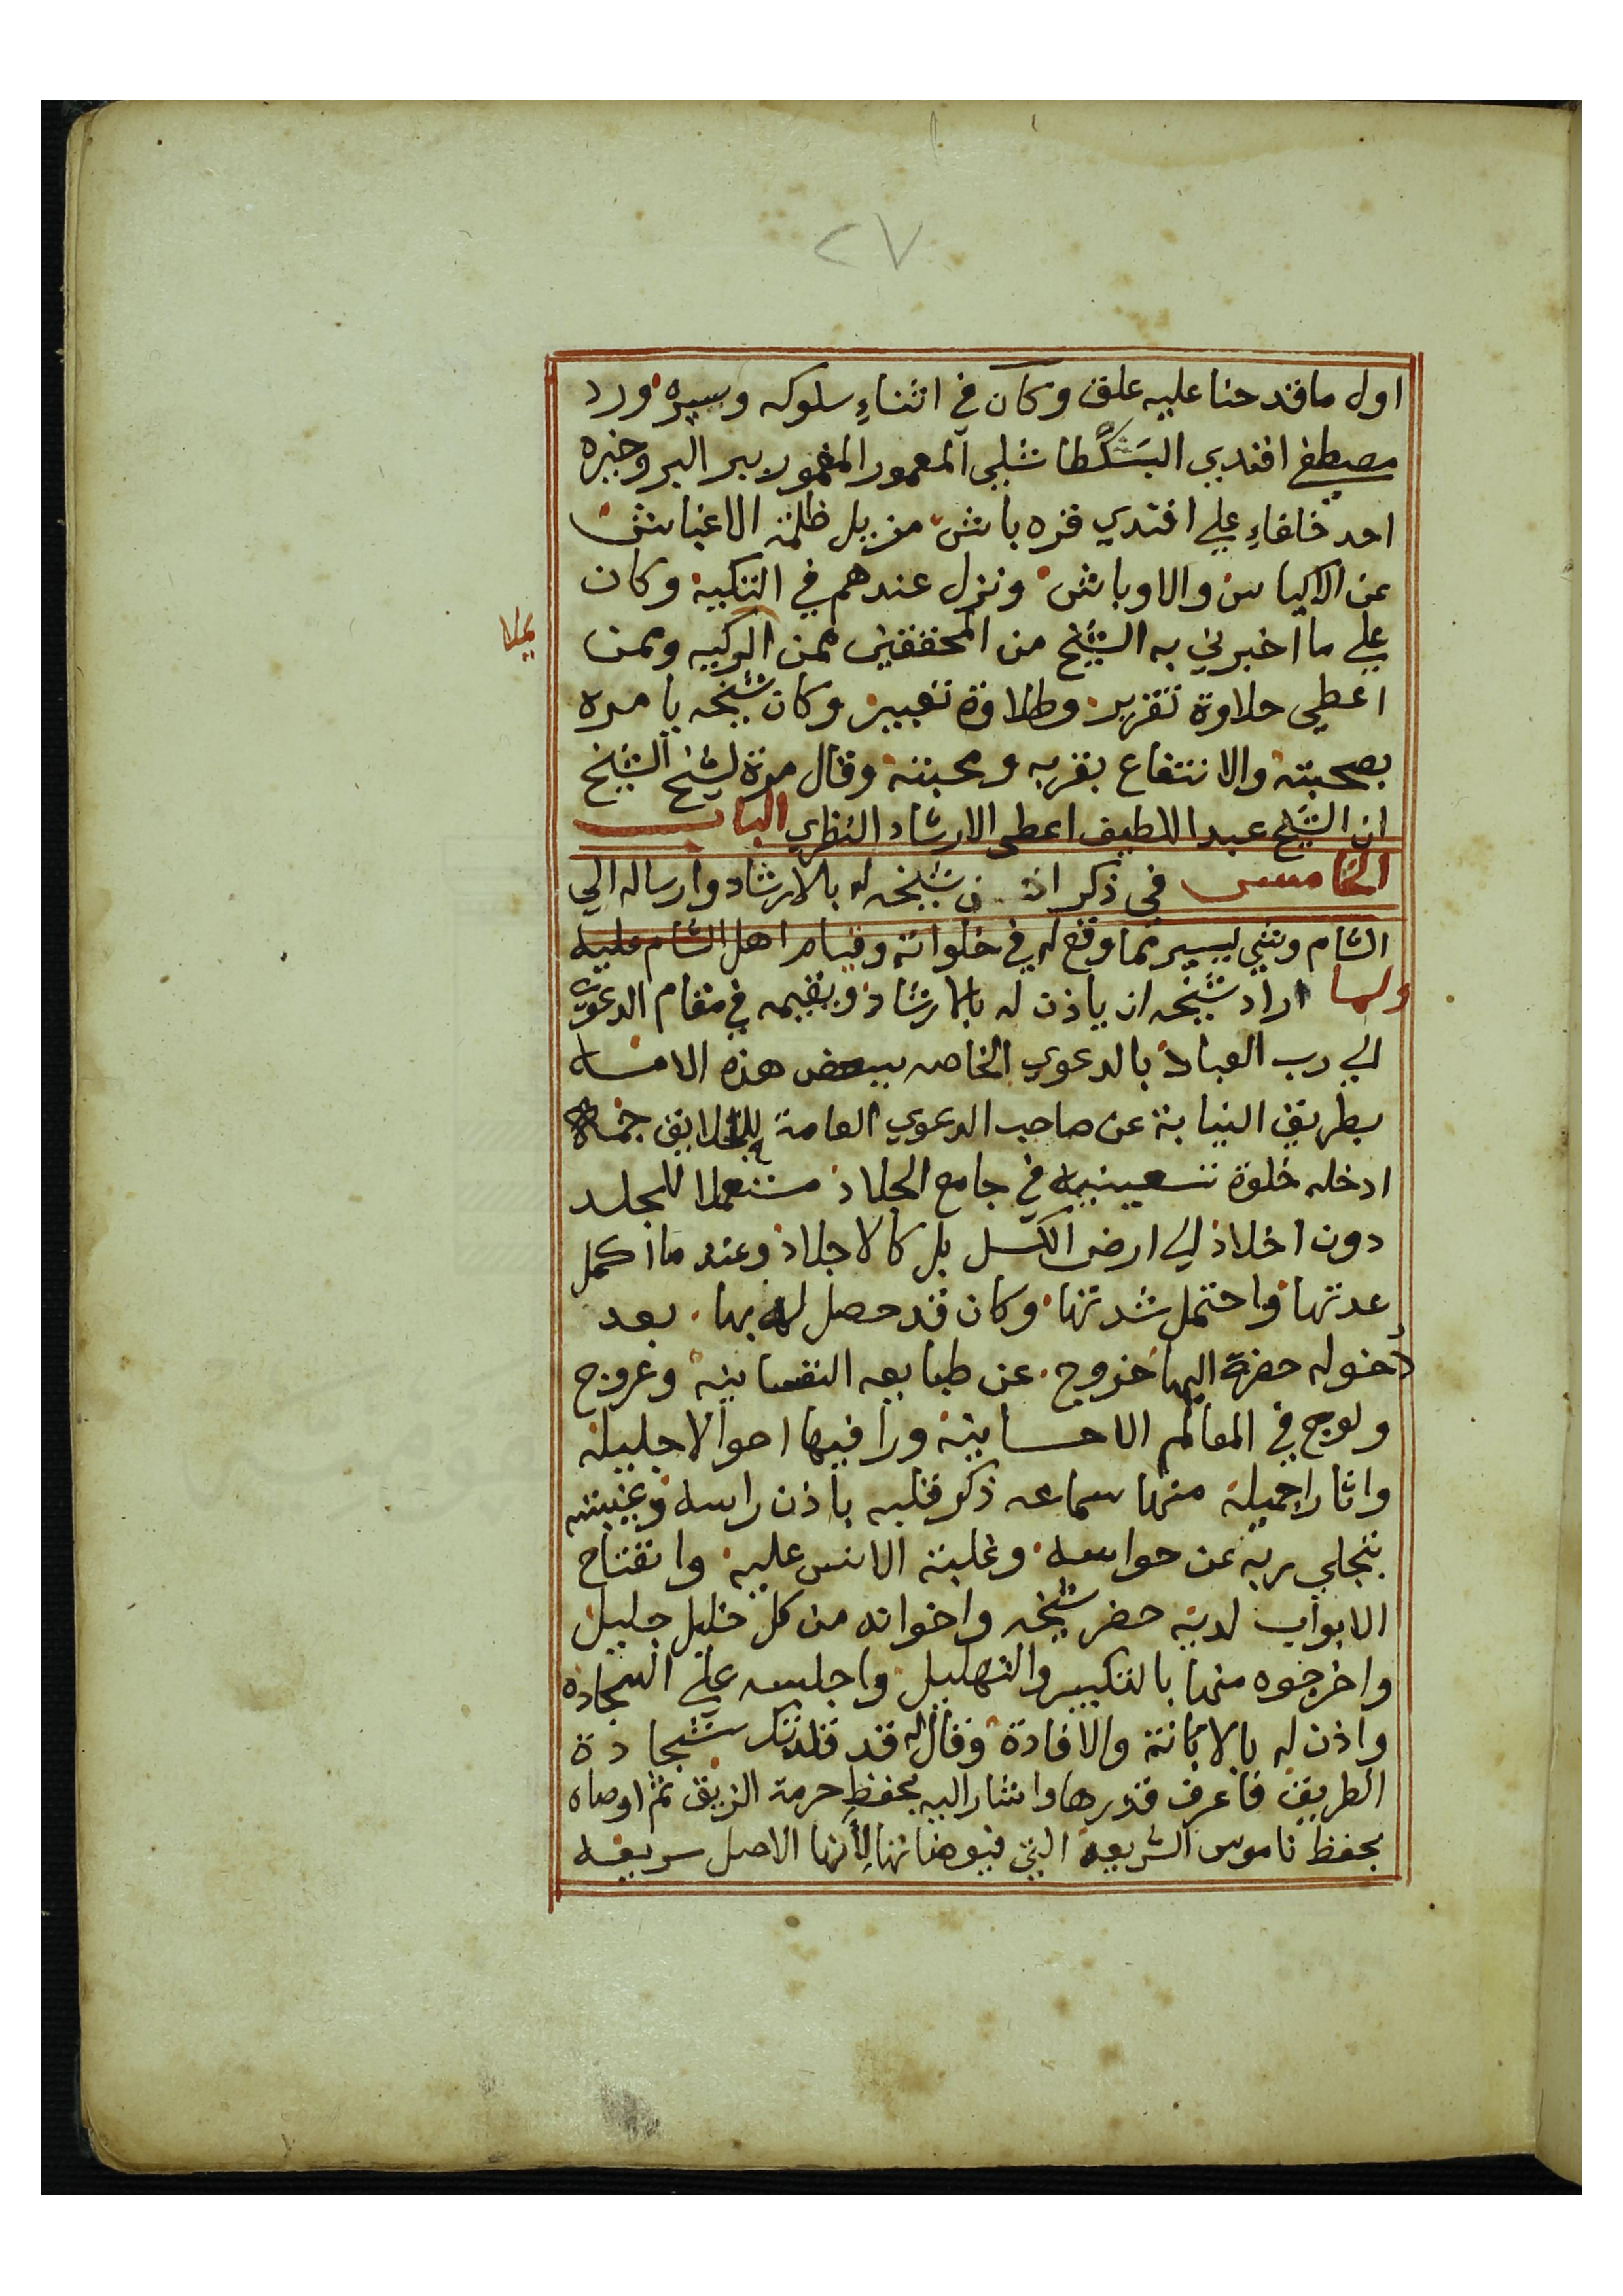 ٢٧
اول ما قد حنا عليه علق وكان في اثناءِ سلوكه وسيره ورد
مصطفى افندي البَشكطاشلي المعمور المغمور ببر البر وخبره
احد خلفاءِ علي افندي قره باش مزيل ظلمة الاغباش
عن الاكياس والاوباش ونزل عندهم في التكية وكان
علي ما اخبرني به الشيخ من المحققين ممن الركبه وممن
اعطي حلاوة تقرير وطلاوة تعبير وكان شيخه يامره
بصحبته والانتفاع بقربه ومحبته وقال مرة لشيخ الشيخ
ان الشيخ عبد اللطيف اعطى الارشاد النظري الباب
الخامس في ذكر اذن شيخه له بالارشاد وارساله الي
الشام وشي يسير مما وقع له في خلواته وقيام اهل الشام عليه
ولما اراد شيخه ان ياذن له بالارشاد ويقيمه في مقام الدعوي
الي رب العباد بالدعوي الخاصه ببعض هذه الامه
بطريق النيابة عن صاحب الدعوي العامة
ادخله خلوة تسعينيه في جامع الجلاد مستعملا للجلد
دون اخلاد الي ارض الكسل بل كالاجلاد وعند ما اكمل
عدتها واحتمل شدتها وكان قد حصل له بها بعد
دخوله حضرة اليها خروج عن طبايعه النفسانيه وعروج
ولوج في المعالم الاحسانية ورا فيها احوالا جليلة
واثارا جميلة منها سماعه ذكر قلبه باذن راسه وغيبته
بتجلي ربه عن حواسه وغلبة الانس عليه وانفتاح
الابواب لديه حضر شيخه واخوانه من كل خليل جليل
واخرجوه منها بالتكبير والتهليل واجلسه علي السجاده
واذن له بالابانة والافادة وقال له قد قلدتك سجادة
الطريق فاعرف قدرها واشار اليه بحفظ حرمة الزيق ثم اوصاه
بحفظ ناموس الشريعه التي فيوضاتها لأنها الاصل سريعه